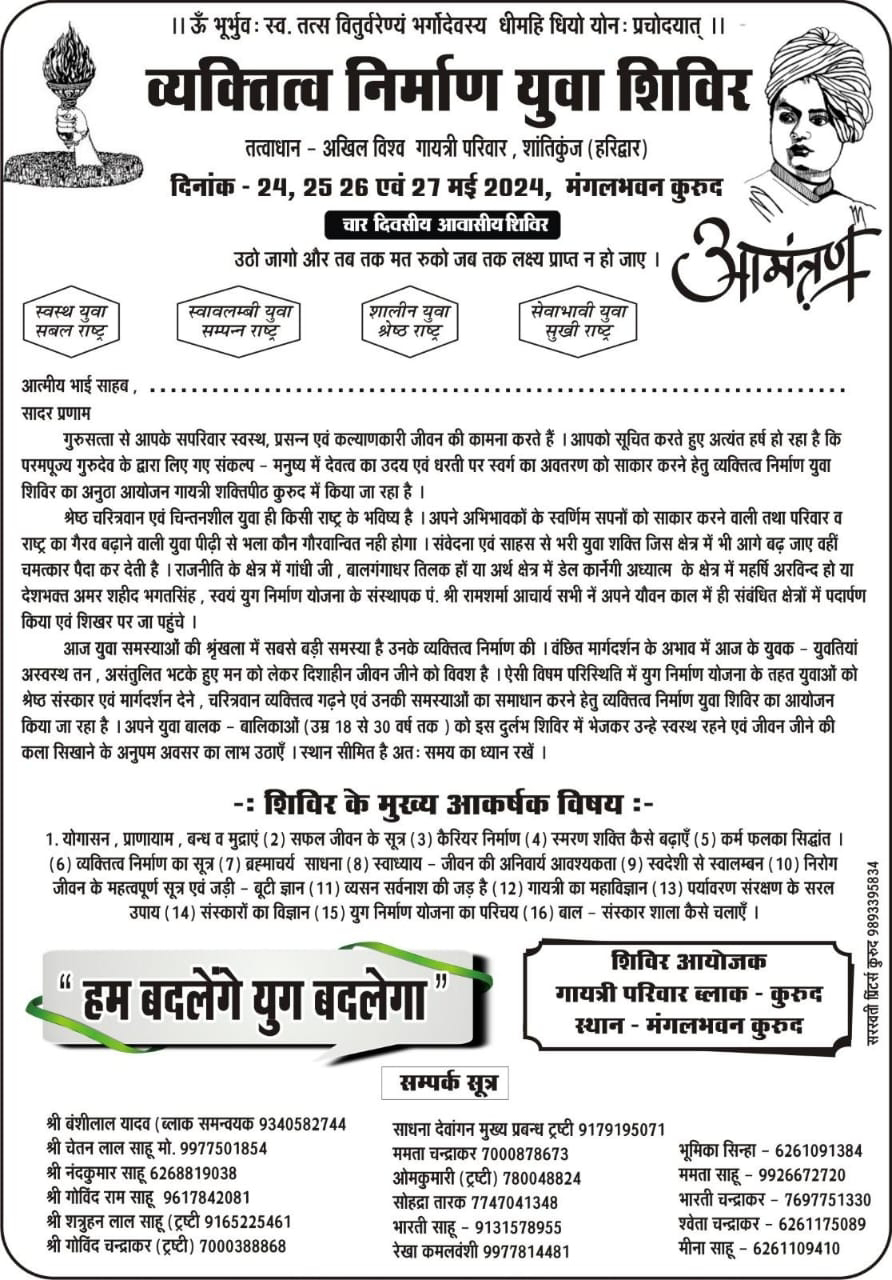 ।। ऊँ भूर्भुवः स्व. तत्स वितुर्वरेण्यं भर्गोदेवस्य धीमहि धियो योनः प्रचोदयात् ।।
व्यक्तित्व निर्माण युवा शिविर
तत्वाधान - अखिल विश्व गायत्री परिवार , शांतिकुंज (हरिद्वार)
दिनांक - 24, 25 26 एवं 27 मई 2024, मंगलभवन कुरुद
चार दिवसीय आवासीय शिविर
आमंत्रण
उठो जागो और तब तक मत रुको जब तक लक्ष्य प्राप्त न हो जाए ।
स्वस्थ युवा
सबल राष्ट्र
स्वावलम्बी युवा
सम्पन्न राष्ट्र
शालीन युवा
श्रेष्ठ राष्ट्र
सेवाभावी युवा
सुखी राष्ट्र
आत्मीय भाई साहब , ........................................................................
सादर प्रणाम
गुरुसत्ता से आपके सपरिवार स्वस्थ, प्रसन्न एवं कल्याणकारी जीवन की कामना करते हैं । आपको सूचित करते हुए अत्यंत हर्ष हो रहा है कि
परमपूज्य गुरुदेव के द्वारा लिए गए संकल्प - मनुष्य में देवत्व का उदय एवं धरती पर स्वर्ग का अवतरण को साकार करने हेतु व्यक्तित्व निर्माण युवा
शिविर का अनुठा आयोजन गायत्री शक्तिपीठ कुरुद में किया जा रहा है ।
श्रेष्ठ चरित्रवान एवं चिन्तनशील युवा ही किसी राष्ट्र के भविष्य है । अपने अभिभावकों के स्वर्णिम सपनों को साकार करने वाली तथा परिवार व
राष्ट्र का गैरव बढ़ाने वाली युवा पीढ़ी से भला कौन गौरवान्वित नही होगा । संवेदना एवं साहस से भरी युवा शक्ति जिस क्षेत्र में भी आगे बढ़ जाए वहीं
चमत्कार पैदा कर देती है । राजनीति के क्षेत्र में गांधी जी , बालगंगाधर तिलक हों या अर्थ क्षेत्र में डेल कार्नेगी अध्यात्म के क्षेत्र में महर्षि अरविन्द हो या
देशभक्त अमर शहीद भगतसिंह , स्वयं युग निर्माण योजना के संस्थापक पं. श्री रामशर्मा आचार्य सभी नें अपने यौवन काल में ही संबंधित क्षेत्रों में पदार्पण
किया एवं शिखर पर जा पहुंचे ।
आज युवा समस्याओं की श्रृंखला में सबसे बड़ी समस्या है उनके व्यक्तित्व निर्माण की । वंछित मार्गदर्शन के अभाव में आज के युवक - युवतियां
अस्वस्थ तन , असंतुलित भटके हुए मन को लेकर दिशाहीन जीवन जीने को विवश है । ऐसी विषम परिस्थिति में युग निर्माण योजना के तहत युवाओं को
श्रेष्ठ संस्कार एवं मार्गदर्शन देने , चरित्रवान व्यक्तित्व गढ़ने एवं उनकी समस्याओं का समाधान करने हेतु व्यक्तित्व निर्माण युवा शिविर का आयोजन
किया जा रहा है । अपने युवा बालक - बालिकाओं (उम्र 18 से 30 वर्ष तक ) को इस दुर्लभ शिविर में भेजकर उन्हे स्वस्थ रहने एवं जीवन जीने की
कला सिखाने के अनुपम अवसर का लाभ उठाएँ । स्थान सीमित है अतः समय का ध्यान रखें ।
-: शिविर के मुख्य आकर्षक विषय :-
1. योगासन , प्राणायाम , बन्ध व मुद्राएं (2) सफल जीवन के सूत्र (3) कैरियर निर्माण (4) स्मरण शक्ति कैसे बढ़ाएँ (5) कर्म फलका सिद्धांत ।
(6) व्यक्तित्व निर्माण का सूत्र (7) ब्रह्माचर्य साधना (8) स्वाध्याय - जीवन की अनिवार्य आवश्यकता (9) स्वदेशी से स्वालम्बन (10) निरोग
जीवन के महत्वपूर्ण सूत्र एवं जड़ी - बूटी ज्ञान (11) व्यसन सर्वनाश की जड़ है (12) गायत्री का महाविज्ञान (13) पर्यावरण संरक्षण के सरल
उपाय (14) संस्कारों का विज्ञान (15) युग निर्माण योजना का परिचय (16) बाल - संस्कार शाला कैसे चलाएँ ।
सरस्वती प्रिंटर्स कुरुद 9893395834
“ हम बदलेंगे युग बदलेगा ”
शिविर आयोजक
गायत्री परिवार ब्लाक - कुरुद
स्थान - मंगलभवन कुरुद
सम्पर्क सूत्र
श्री बंशीलाल यादव (ब्लाक समन्वयक 9340582744
श्री चेतन लाल साहू मो. 9977501854
श्री नंदकुमार साहू 6268819038
श्री गोविंद राम साहू 9617842081
श्री शत्रुहन लाल साहू (ट्रष्टी) 9165225461
श्री गोविंद चन्द्राकर (ट्रष्टी) 7000388868
साधना देवांगन मुख्य प्रबन्ध ट्रष्टी 9179195071
ममता चन्द्राकर 7000878673
ओमकुमारी (ट्रष्टी) 780048824
सोहद्रा तारक 7747041348
भारती साहू - 9131578955
रेखा कमलवंशी 9977814481
भूमिका सिन्हा - 6261091384
ममता साहू - 9926672720
भारती चन्द्राकर - 7697751330
श्वेता चन्द्राकर - 6261175089
मीना साहू - 6261109410